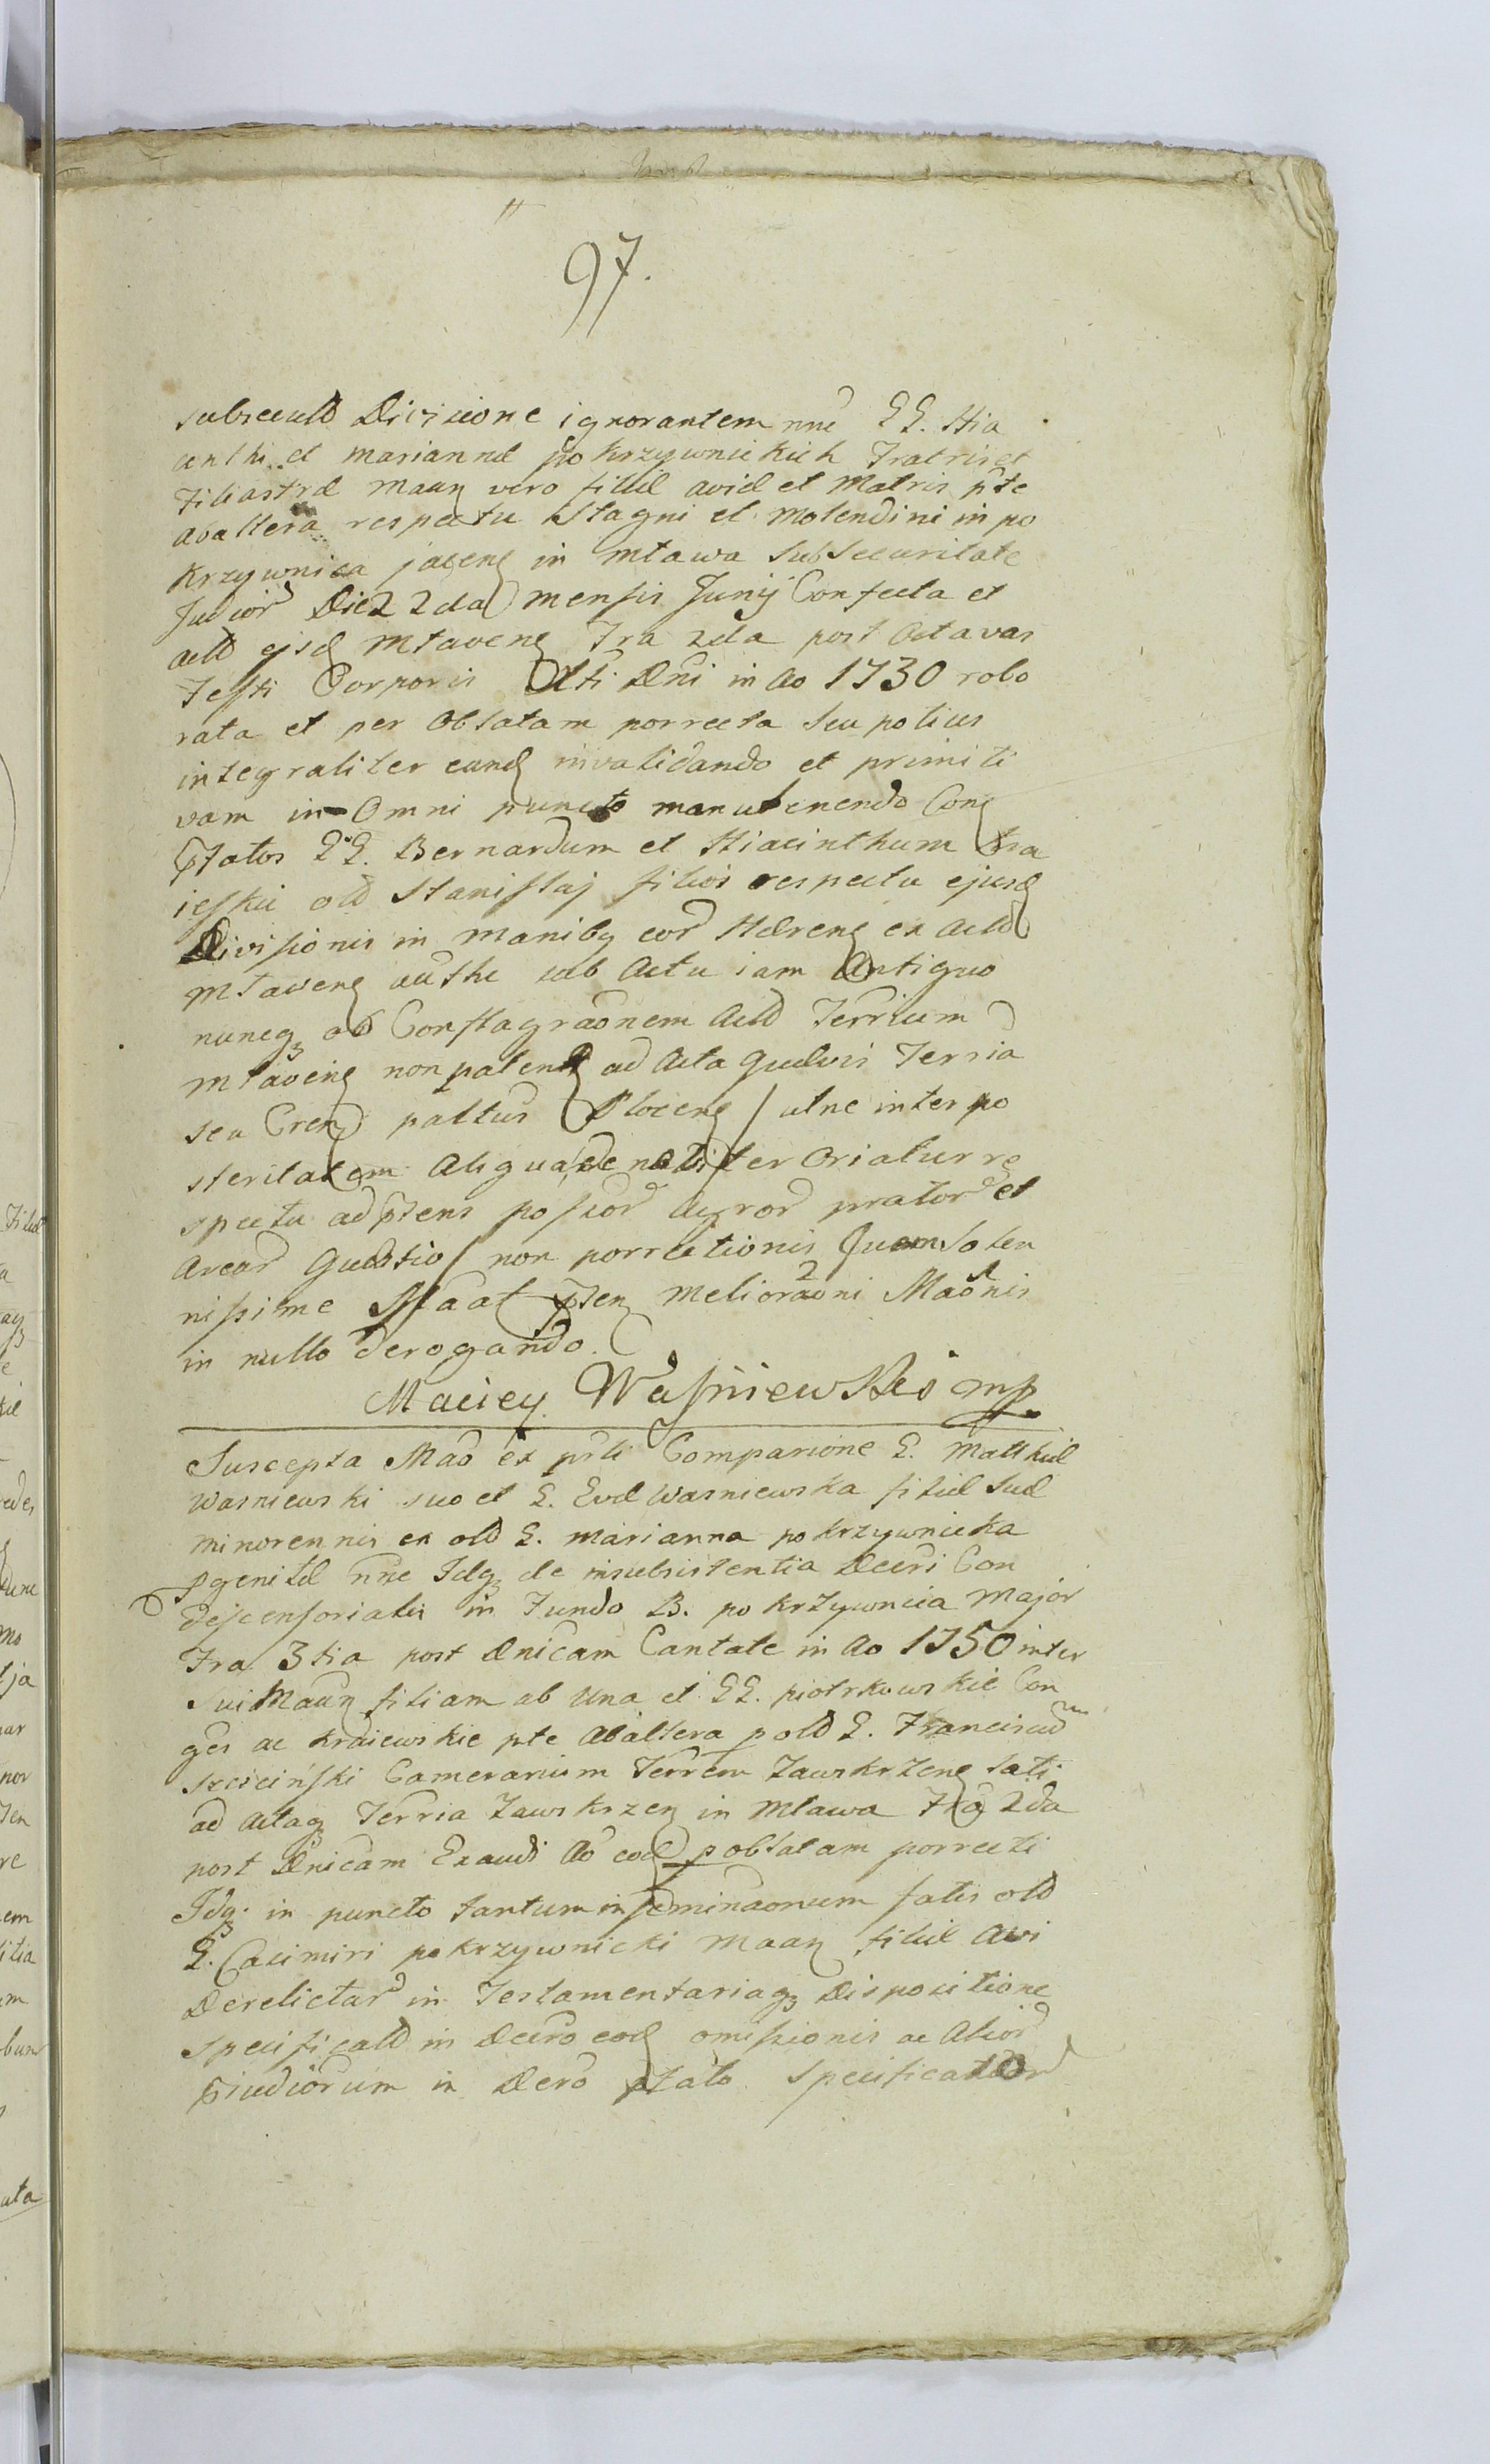 97.
subsecuta Divisione ignorantem nne GG. Hia
centhi et Mariannæ Pokrzywnickich Fratris et
Filiastræ Maan vero filiæ aviæ et Matris pte
ab altera respectu Stagni et Molendini in po
krzywnica jacen in Mlawa sub securitate
Judior Die 22da mensis Junij Confecta et
acta ejsd Mlaven Fra 2da post Octavas
Festi Corporis Xti Dni in Ao 1730 robo
rata et per Oblatam porrecta seu potius
integraliter eand invalidando et primiti
vam in Omni puncto manutenendo Con
ptatos GG. Bernardum et Hiacinthum Kra
ieski old Stanislaj filios respectu ejusd
Divisionis in maniby eor Hæren ex Acta
Mlaven authe sub Actu iam Antiquo
nuncq ob Conflagraonem Actd Terrium
Mlaven non paten ad Acta quævis Terria
seu Cren paltus Plocen / ut ne inter po
steritatem aliqua oriatur re
spectu adptens possior agror prator et
arear quæstio / non porrectionis quem solen
nissime Mfaat pten Melioraoni Maonis
in nullo derogando.
Maciey Waśniewski mp
Suscepta Mao ex prli Comparione G. Matthiæ
Wasniewski suo et G. Evæ Wasniewska filiæ suæ
minorennis ex old G. Marianna pokrzywnicka
pgenitæ nne Idq de insubsistentia Decri Con
descensorialis in Fundo B. pokrzywnica Major
Fra 3tia post Dnicam Cantate in Ao 1750 inter
sui Maan filiam ab una et GG. piotrkowskie Con
ges ac Kraiewskie pte ab altera p old G. Franciscum
Szciciński Camerarium Terrem Zawskrzen lati
ad Actaq Terria Zawskrzen in Mlawa Fra 2da
post Dnicam Exaudi Ao eod p oblatam porrecti
Idq in puncto tantum inseminaonum satis old
G. Casimiri pokrzywnicki Maan filiæ Avi
Derelictar in Testamentariaq Dispositione
specificatd in Decro eod omissionis ac Alior
piudiorum in Dero ptato specificator